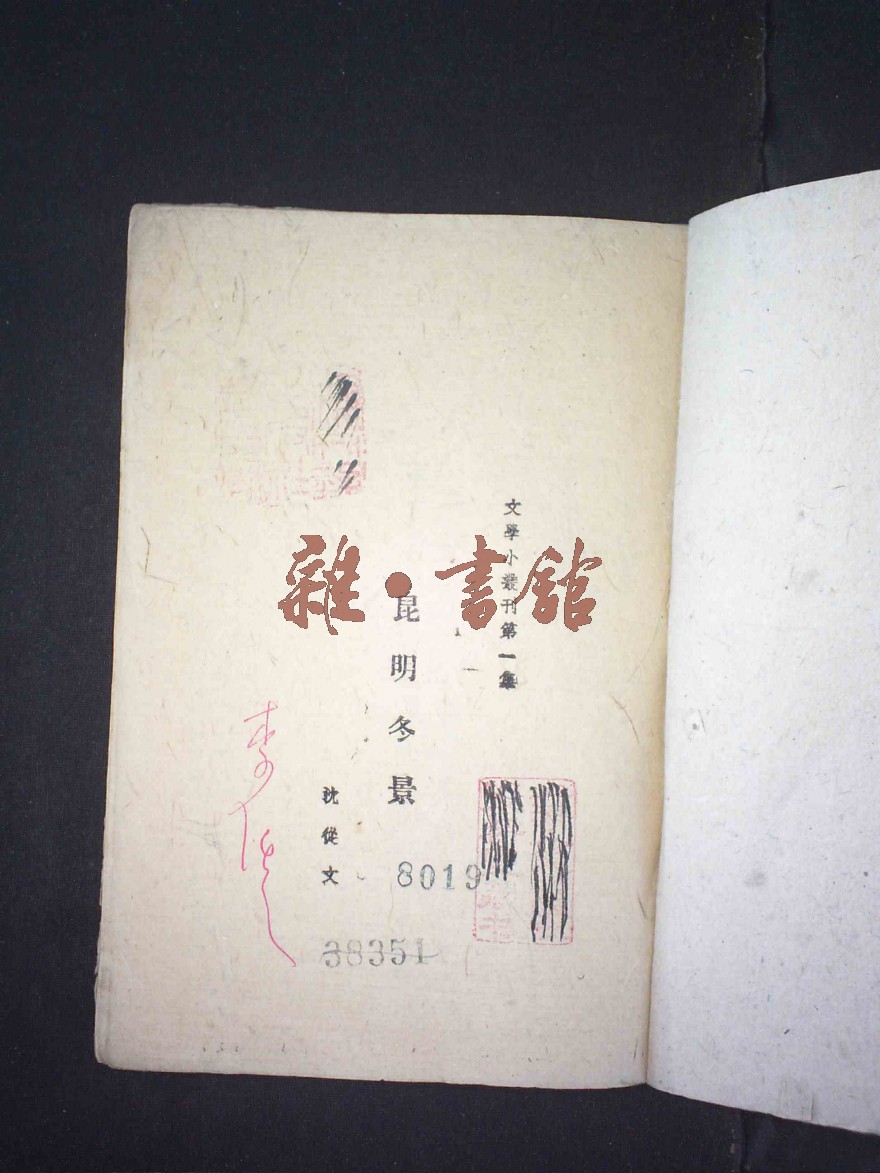 文學小叢刊第一集
昆明冬景
沈從文
8019
38351
雜·書館